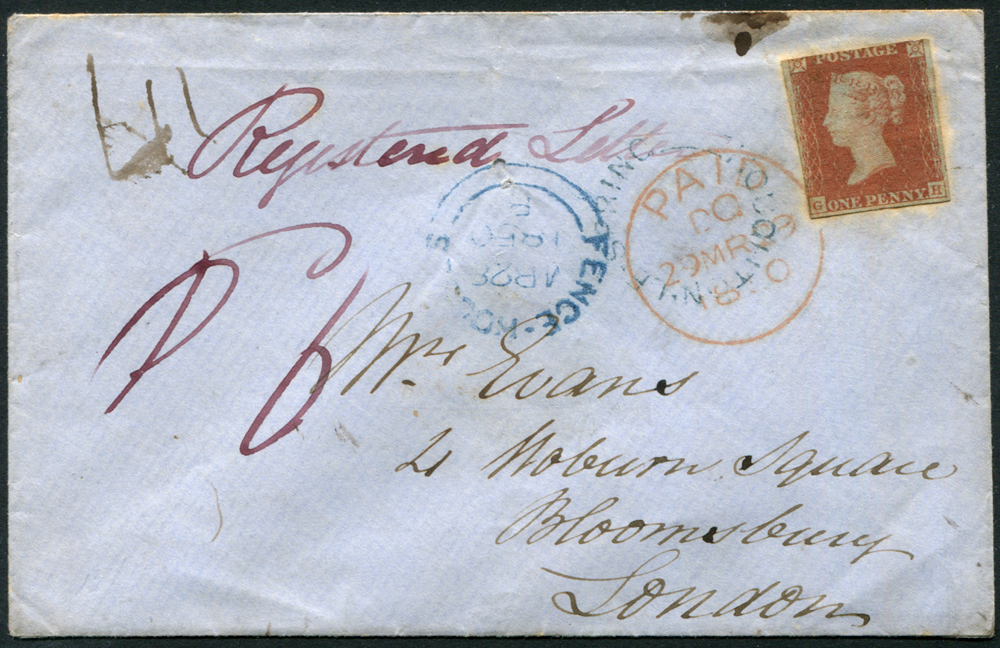 Registered Letter
POSTAGE
G ONE PENNY H
PAID
DQ
29 MR 29
1850
FENCE-HOUSES
MR 28
1850
P 6
Mr Evans
21 Woburn Square
Bloomsbury
London